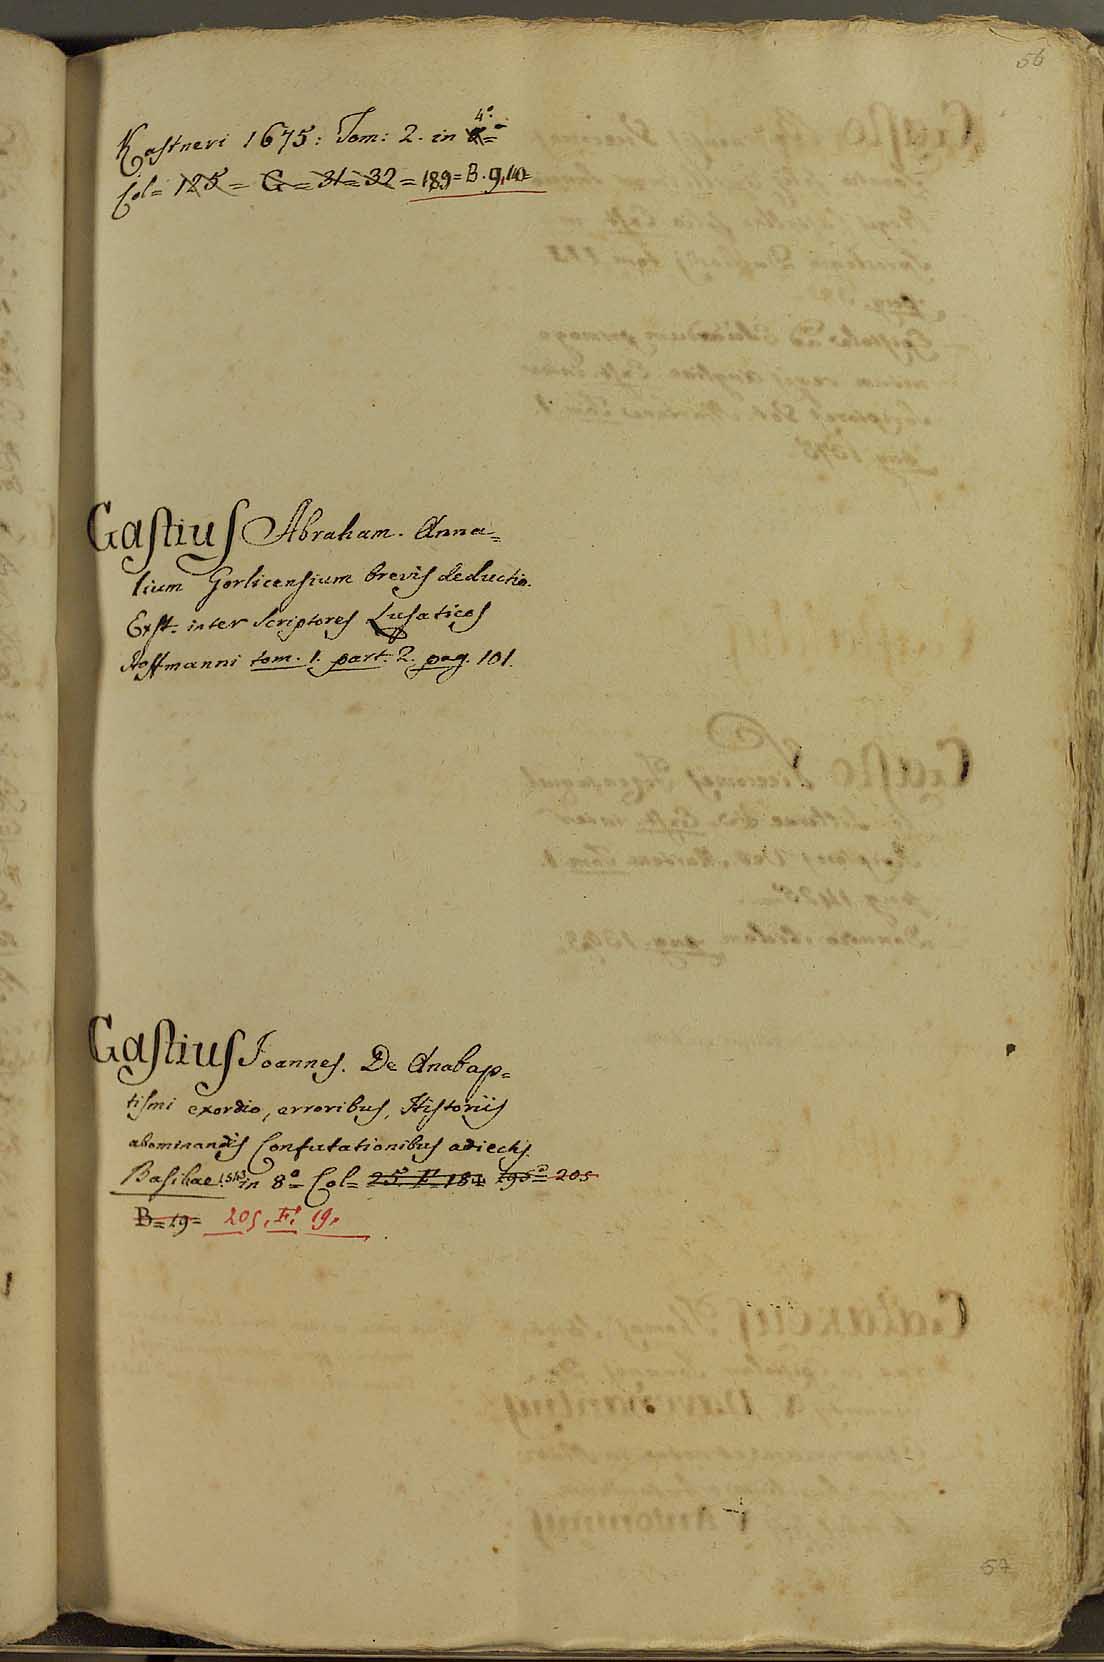 56
Kastneri 1675: Tom: 2. in 4º=
Col= 125 = G = 31= 32 = 189= B. 9,10=
Gastius Abraham. Anna=
lium Gorlicensium brevis deductio.
Exst. inter Scriptores Lusaticos
Hoffmanni tom. 1. part. 2. pag. 101.
Gastius Joannes. De Anabap=
tismi exordio, erroribus, Historiis
abominandis Confutationibus adiectis.
Basileae 1543 in 8º= Col= 25. F. 184 195= 205
B= 19= 205. F. 19.
57